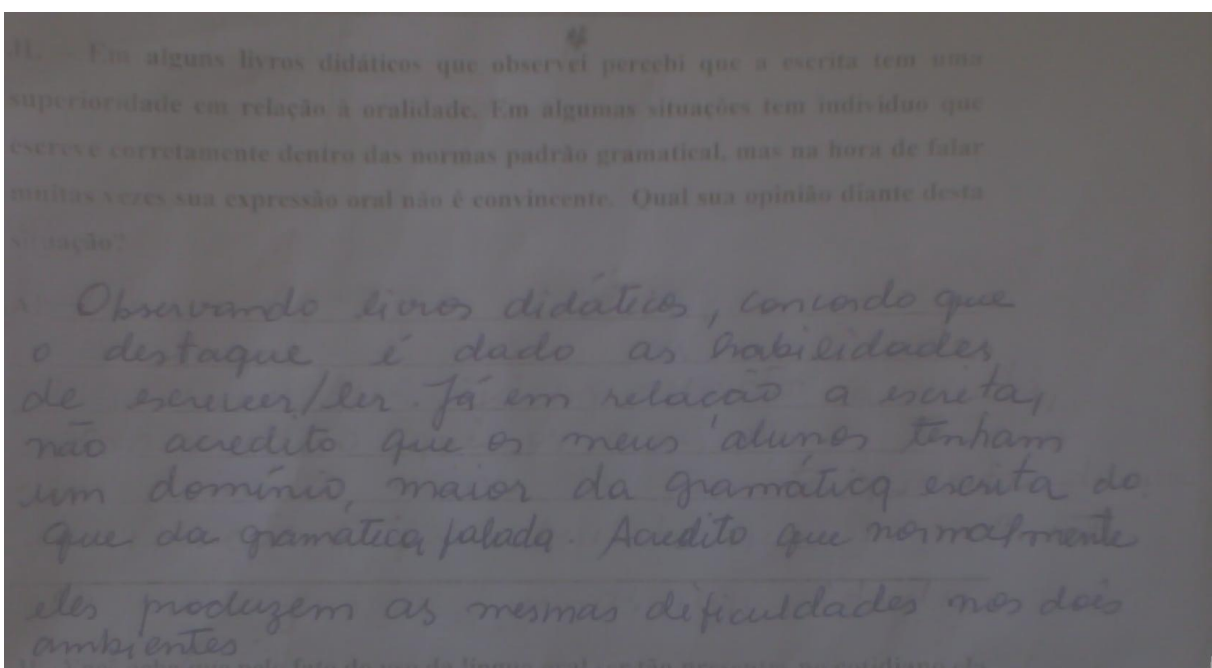 H: – Em alguns livros didáticos que observei percebi que a escrita tem uma
superioridade em relação à oralidade. Em algumas situações tem individuo que
escreve corretamente dentro das normas padrão gramatical, mas na hora de falar
muitas vezes sua expressão oral não é convincente. Qual sua opinião diante desta
situação?
Observando livros didáticos, concordo que
o destaque é dado as habilidades
de escrever/ler. Já em relação a escrita,
não acredito que os meus alunos tenham
um domínio, maior da gramática escrita do
que da gramática falada. Acredito que normalmente
eles produzem as mesmas dificuldades nos dois
ambientes.